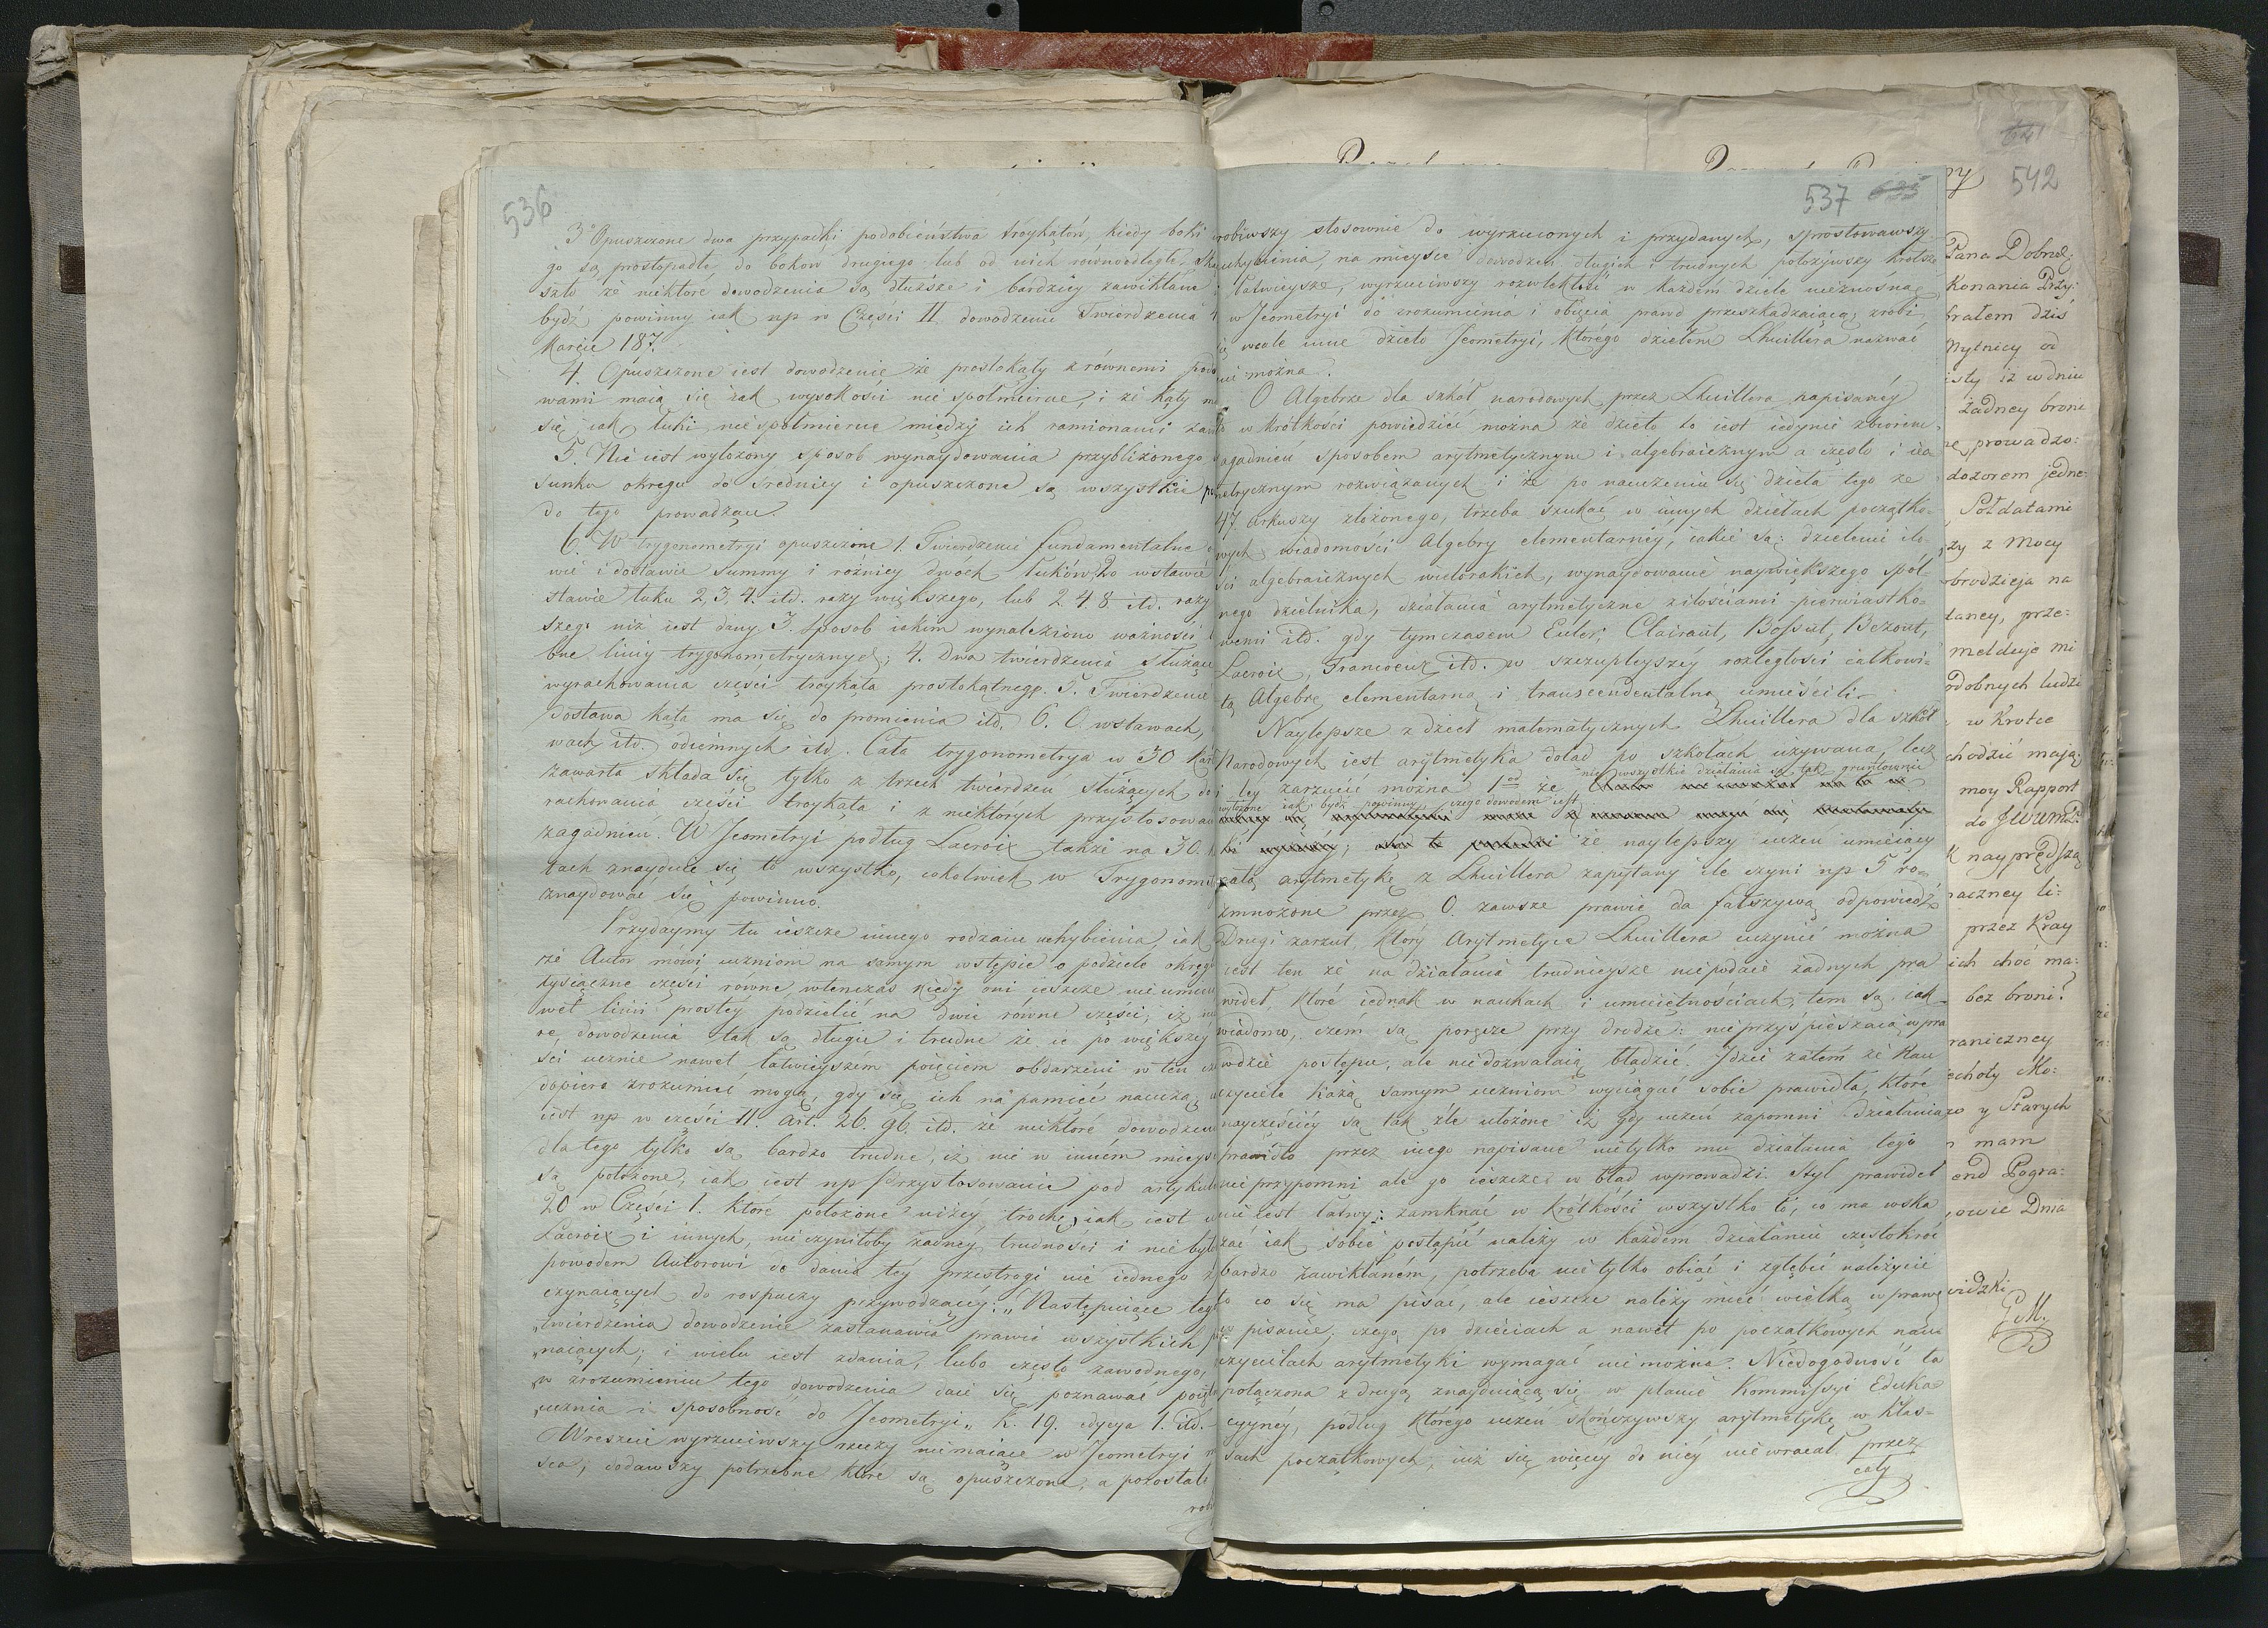 536
3° Opuszczone dwa przypadki podobieństwa tróykątów, kiedy boki
go są prostopadłe do boków drugiego lub od nich równoodległe.
szło że niektóre dowodzenia są dłuższe i bardziéy zawikłane
bydź powinny iak np w Części II. dowodzenie Twierdzenia
karcie 187.
4. Opuszczone iest dowodzenie że prostokąty z równemi
wami maią się iak wysokości nie spółmierne, i że kąty
się iak łuki nie spółmierne między ich ramionami
5. Nie iest wyłożony sposób wynaydowania przybliżonego
sunku okręgu do średnicy i opuszczone są wszystkie
do tego prowadzące.
6. W trygonometryi opuszczone 1. Twierdzenie fundamentalne
wie i dostawie summy i różnicy dwóch łuków, 2o wstawie
stawie łuku 2, 3, 4. itd. razy większego, lub 2. 4. 8 itd. razy
szego niż iest dany 3. sposób iakim wynaleziono ważności
bne liniy trygonometrycznych; 4. Dwa twierdzenia służące
wyrachowania części troykąta prostokątnego. 5. Twierdzenie
dostawa kąta ma się do promienia itd. 6. O wstawach,
wach itd. odiemnych itd. Cała trygonometrya w 30
zawarta składa się tylko z trzech twierdzeń służących do
rachowania części troykąta i z niektórych przystosowań
zagadnień. W Jeometryi podług Lacroix także na 30.
tach znayduie się to wszystko, cokolwiek w Trygonom
znaydować się powinno.
Przydaymy tu ieszcze innego rodzaiu uchybienia, iak
że Autor mówi uczniom na samym wstępie o podziele okręgu
tysiączne części równe, wtenczas kiedy oni ieszcze nie umieią
wet linii prostéy podzielić na dwie równe części;
re, dowodzenia tak są długie i trudne że ie po większéy
ści ucznie nawet łatwieyszém poięciem obdarzeni w ten
dopiero zrozumieć mogą, gdy się ich na pamięć nauczą,
iest np w części II. Art. 26. 96. itd. że niektóre dowodzenia
dla tego tylko są bardzo trudne, iż nie w inném mieyscu
są położone, iak iest np Przystosowanie pod artykułem
20 w Części 1. które położone niżéy trochę, iak iest
Lacroix i innych, nie czyniłoby żadnéy trudności i nie było
powodem Autorowi do dania téy przestrogi nie iednego
czynaiących do rospaczy przywodzącéy: „Następuiące tego
„twierdzenia dowodzenie zastanawia prawie wszystkich
„naiących; i wielu iest zdania, lubo często zawodnego,
„w zrozumieniu tego dowodzenia daie się poznawać
„ucznia i sposobność do Jeometryi„ K. 19. edycya 1. itd.
Wreszcie wyrzuciwszy rzeczy niemaiące w Jeometryi
sca, dodawszy potrzebne które są opuszczone, a pozostałe
537
robiwszy stosownie do wyrzuconych i przydanych, sprostowawszy
uchybienia, na mieysce dowodzeń długich i trudnych położywszy krótsze
i łatwieysze, wyrzuciwszy rozwlekłość w każdem dziele nieznośną
w Jeometryi do zrozumienia i obięcia prawd przeszkadzaiącą, zrobi
się wcale inne dzieło Jeometryi, którego dziełem Lhuillera nazwać
nie można.
O Algebrze dla szkół narodowych przez Lhuillera napisanéy
to w krótkości powiedzieć można że dzieło to iest iedynie zbiorem
zagadnień sposobem arytmetycznym i algebraicznym a często i ieo
metrycznym rozwiązanych i że po nauczeniu się dzieła tego ze
47 arkuszy złożonego, trzeba szukać w innych dziełach początko-
wych wiadomości Algebry elementarnéy, iakie są: dzielenie ilo-
ści algebraicznych wielorakich, wynaydowanie naywiększego spól-
nego dzielnika, działania arytmetyczne z ilościami pierwiastko-
wemi itd. gdy tymczasem Euler, Clairaut, Bossut, Bezout,
Lacroix, Francoeur itd. w szczupleyszéy rozległości całkowi-
tą Algebrę elementarną i transcendentalną umieścili.
Naylepsze z dzieł matematycznych Lhuillera dla szkół
Narodowych iest arytmetyka dotąd po szkołach używana, lecz
i téy zarzucić można 1od że nie wszystkie działania są tak gruntownie
wyłożone iak bydź powinny, czego dowodem iest
że naylepszy uczeń umieiący
całą arytmetykę z Lhuillera zapytany ile czyni np 5 ro-
zmnożone przez 0. zawsze prawie da fałszywą odpowiedź
Drugi zarzut, który Arytmetyce Lhuillera uczynić można
iest ten że na działania trudnieysze niepodaie żadnych pra
wideł, które iednak w naukach i umieiętnościach, tem są, iak
wiadomo, czem są poręcze przy drodze: nieprzyśpieszaią wpra
wdzie postępu, ale niedozwalaią błądzić. Idzie zatém że Nau
czyciele każą samym uczniom wyciągać sobie prawidła, które
nayczęściéy są tak źle ułożone iż gdy uczeń zapomni działania
prawidło przez niego napisane nietylko mu działania tego
nie przypomni ale go ieszcze w błąd wprowadzi. Styl prawideł
nie iest łatwy: zamknąć w krótkości wszystko to, co ma wska
zać iak sobie postąpić należy w każdém działaniu częstokroć
bardzo zawikłaném, potrzeba nie tylko obiąć i zgłębić należycie
to co się ma pisać, ale ieszcze należy mieć wielką wprawę
w pisanie, czego po dzieciach a nawet po początkowych nau-
czycielach arytmetyki wymagać nie można. Niedogodność ta
połączona z drugą znayduiącą się w planie Kommissyi Eduka
cyynéy, podług którego uczeń skończywszy arytmetykę w klas-
sach początkowych, iuż się więcéy do niéy nie wracał przez
cały
542
Pana Dobrod:
konania Przy:
brałem dziś
Mytnicy od
isty iż w dniu
żadney broni
prowadzo:
dozorem jedne:
Połdatami
zy z Mocy
brodzieja na
taney, prze:
melduje mi
dobnych ludzi
w krotce
chodzić mają
moy Rapport
do JWWmo
nayprędszą
naczney li:
przez Kray
ich choć ma:
bez broni!
raniczney
echoty Mo:
y Starych
mam
end Pogra:
owie Dnia
widzki
G M.